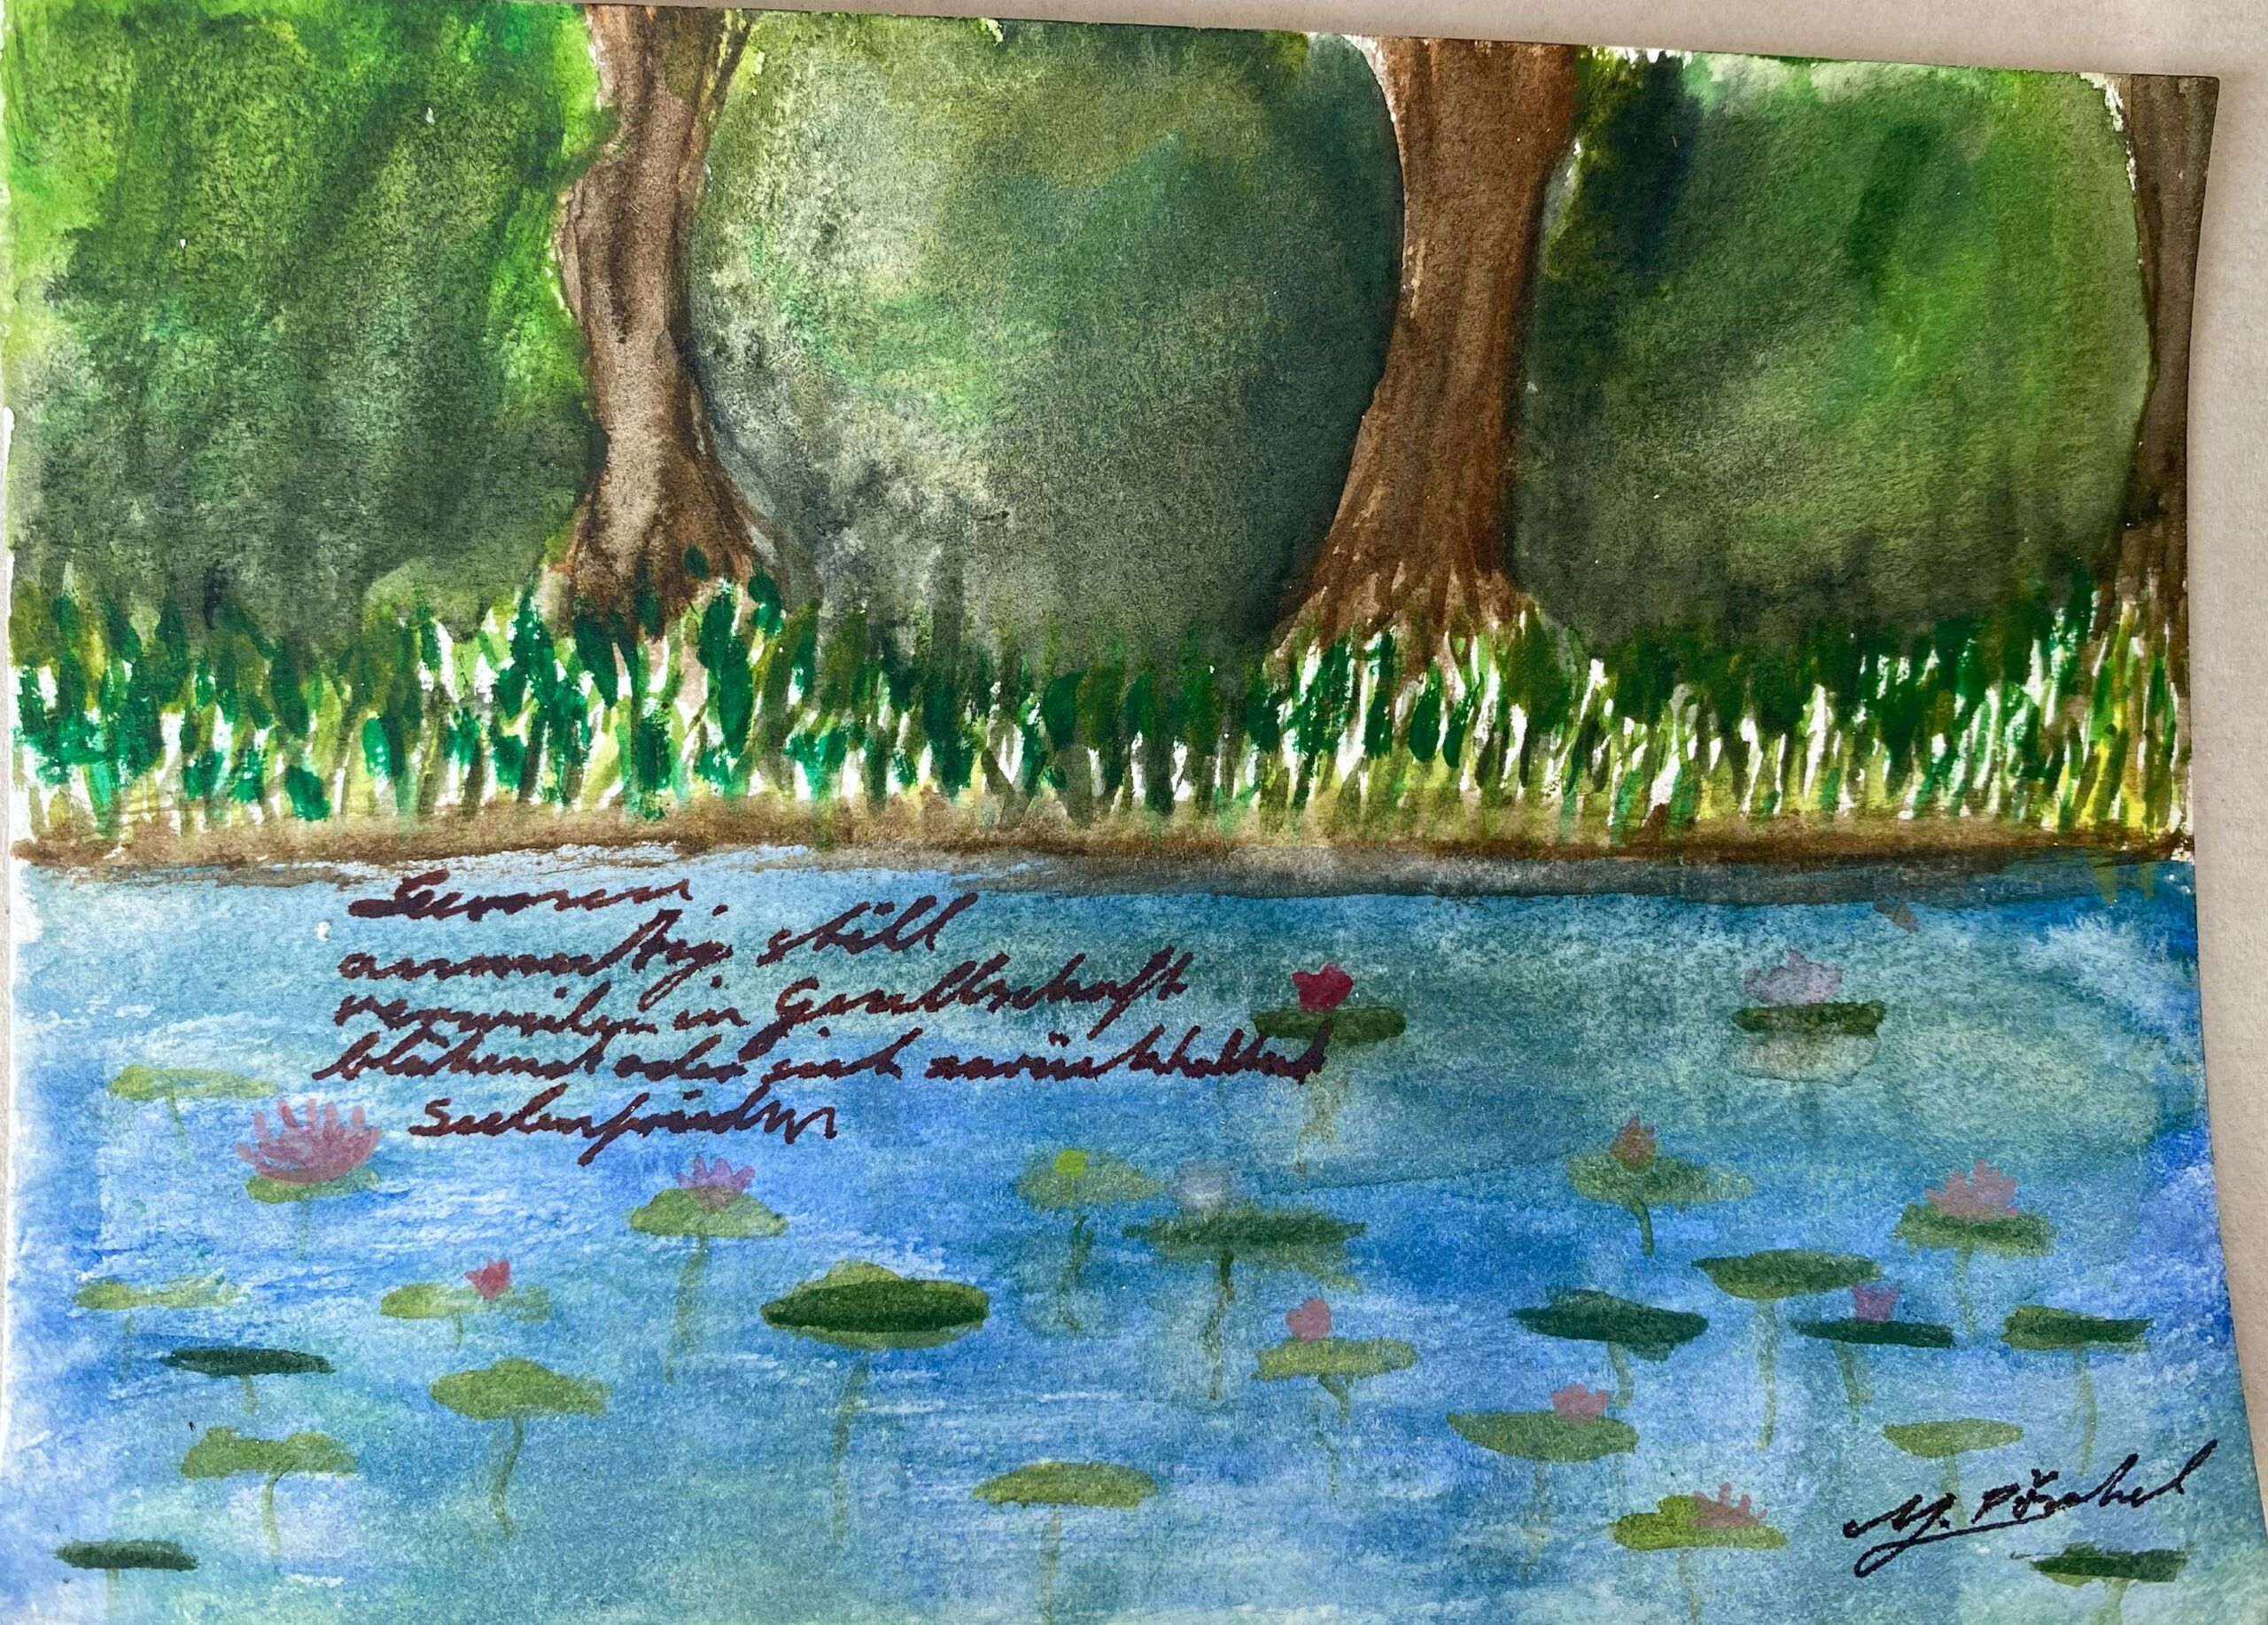 Seerosen
anmutig still
verweilen in Gesellschaft
blühend oder sich zurückhaltend
Seelenfrieden
M. Pöschel